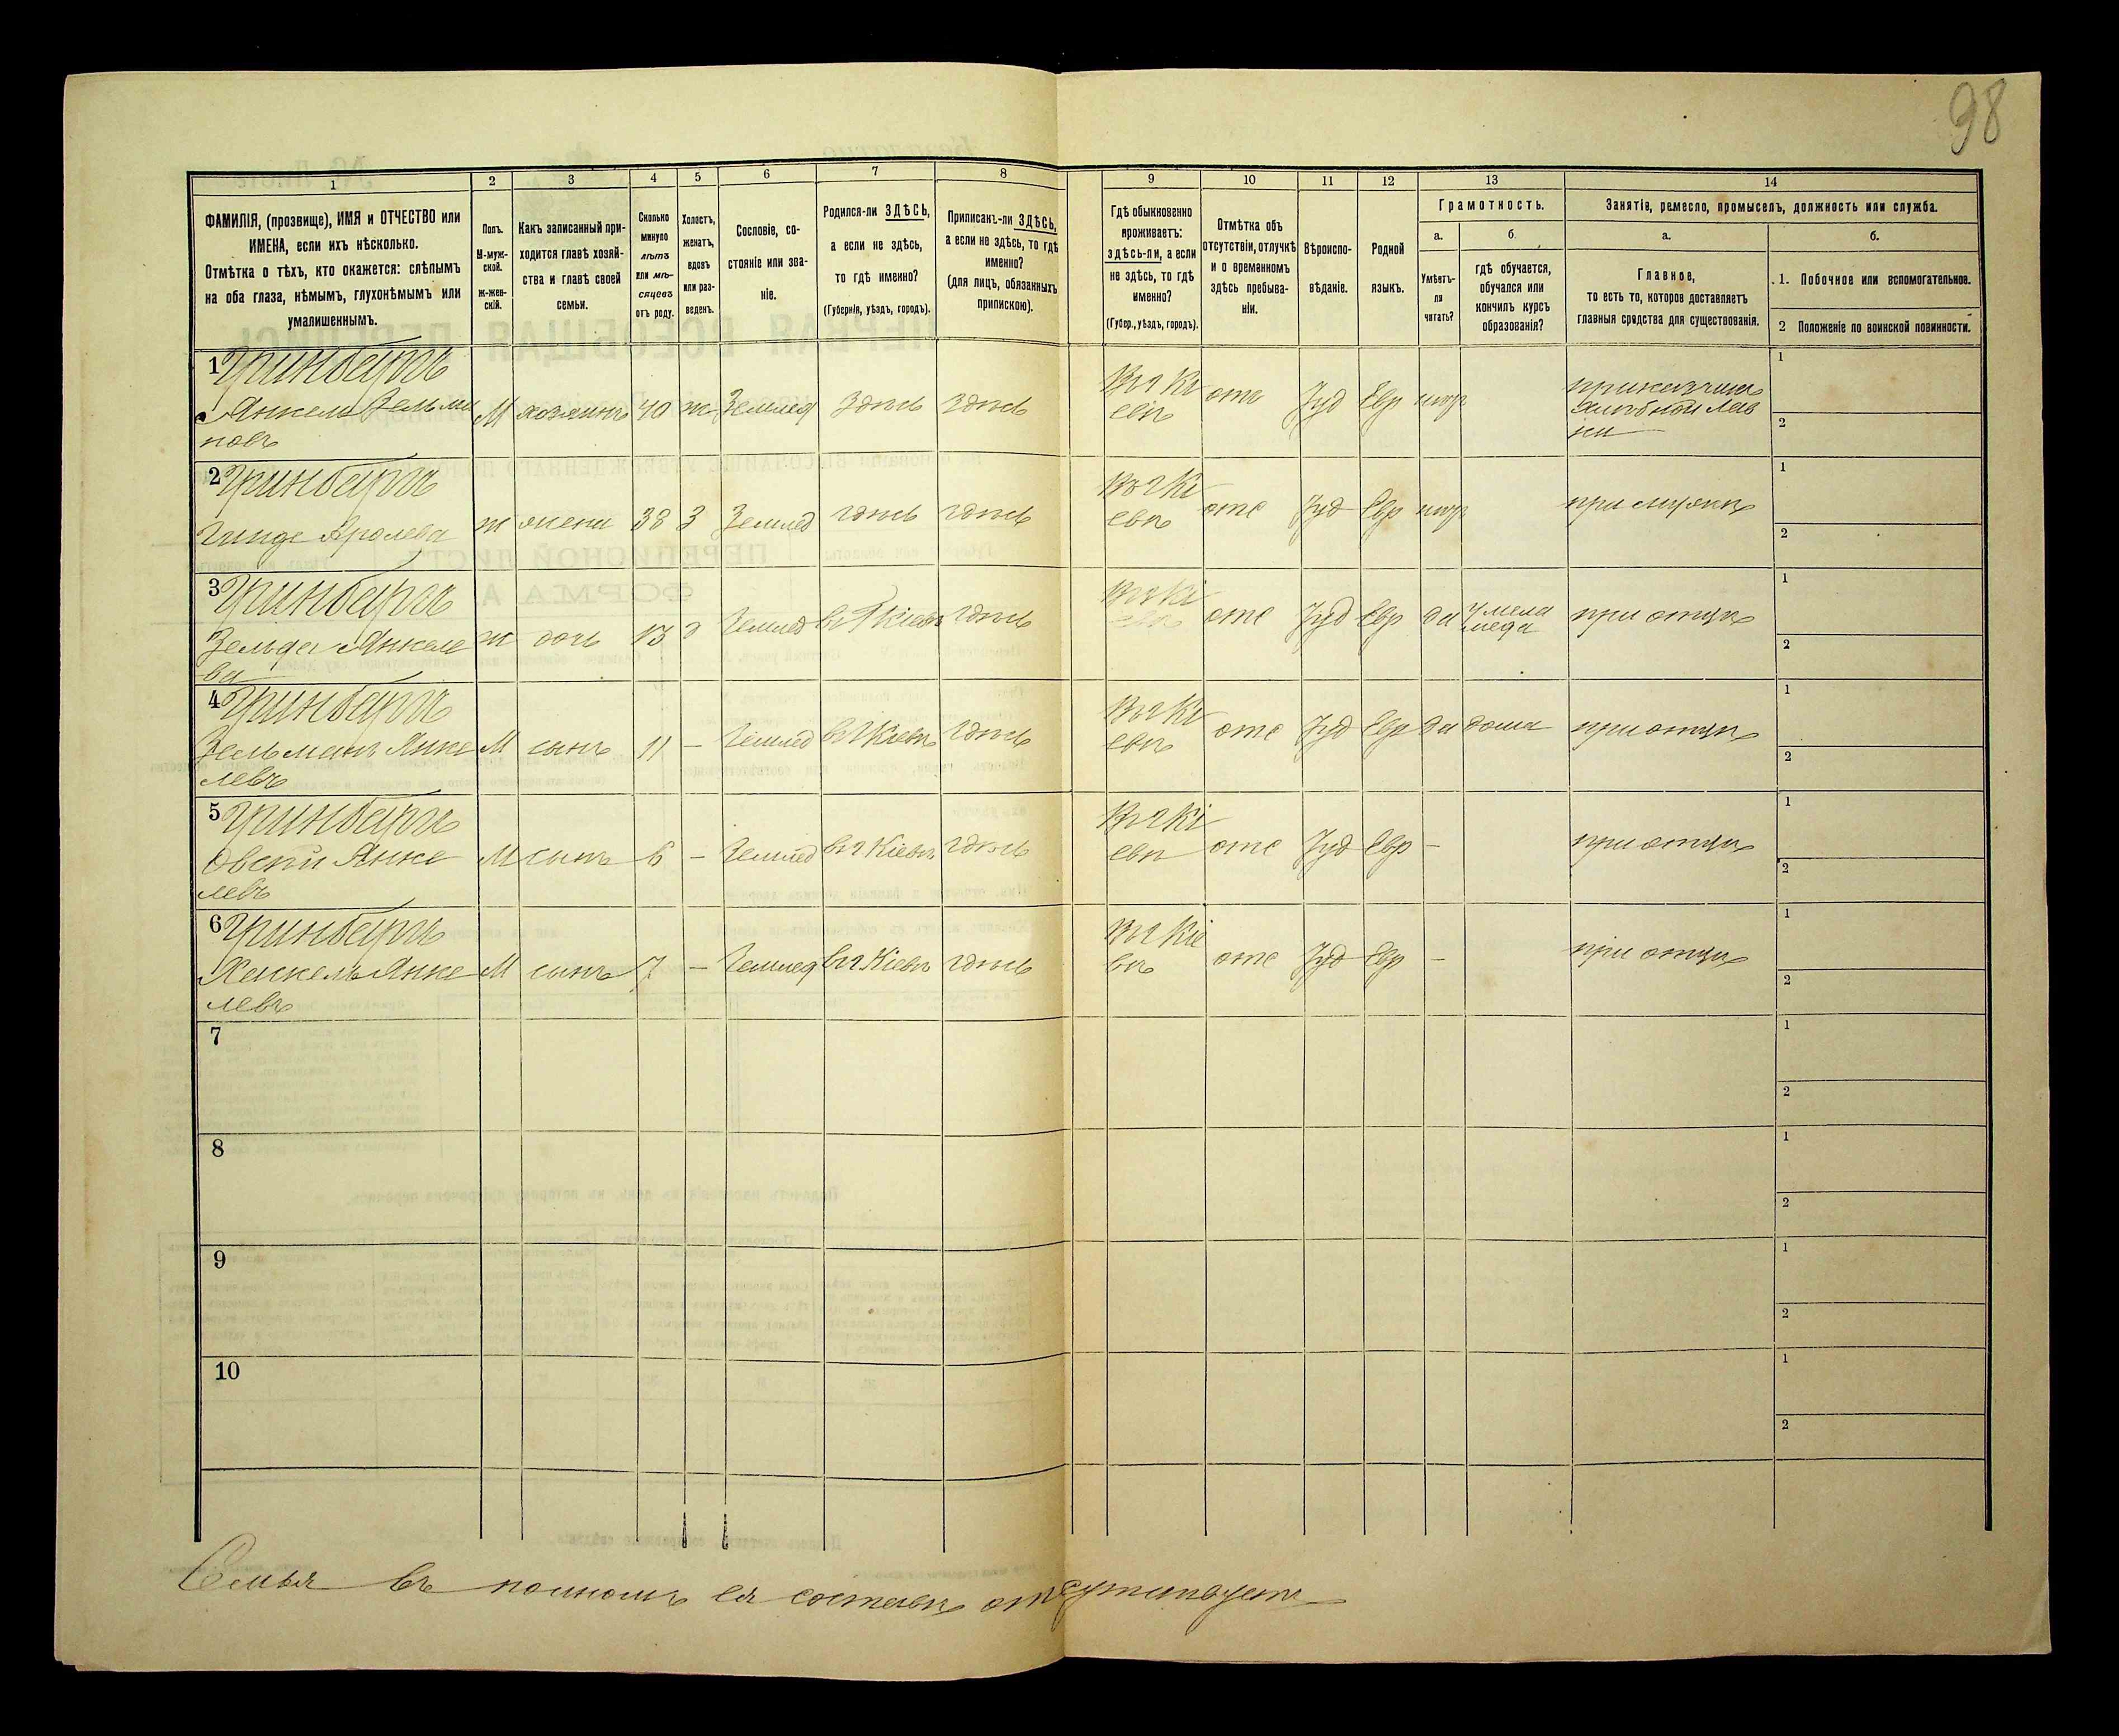 98
1 2 3 4 5 6 7 8 9 10 11 12 13 14
ФАМИЛІЯ, (прозвище), ИМЯ и ОТЧЕСТВО или
ИМЕНА, если ихъ нѣсколько.
Отмѣтка о тѣхъ, кто окажется: слѣпымъ
на оба глаза, нѣмымъ, глухонѣмымъ или
умалишеннымъ.
Полъ.
М-муж-
ской.
Ж-жен-
скій.
Какъ записанный при-
ходится главѣ хозяй-
ства и главѣ своей
семьи.
Сколько
минуло
лѣтъ
или мѣ-
сяцевъ
отъ роду.
Холостъ,
женатъ,
вдовъ
или раз-
веденъ.
Сословіе, со-
стояніе или зва-
ніе.
Родился-ли ЗДѢСЬ,
а если не здѣсь,
то гдѣ именно?
(Губернія, уѣздъ, городъ).
Приписанъ-ли ЗДѢСЬ,
а если не здѣсь, то гдѣ
именно?
(для лицъ, обязанныхъ
припискою).
Гдѣ обыкновенно
проживаетъ:
здѣсь-ли, а если
не здѣсь, то гдѣ
именно?
(Губер., уѣздъ, городъ).
Отмѣтка объ
отсутствіи, отлучкѣ
и о временномъ
здѣсь пребыва-
ніи.
Вѣроиспо-
вѣданіе.
Родной
языкъ.
Грамотность.
а. б.
Умѣетъ-
ли
читать?
гдѣ обучается,
обучался или
кончилъ курсъ
образованія?
Занятіе, ремесло, промыселъ, должность или служба.
а. б.
Главное,
то есть то, которое доставляетъ
главныя средства для существованія.
1. Побочное или вспомогательное.
2 Положеніе по воинской повинности.
1 Гринбергъ
Янкель Зельма М хозяинъ 40 ж Землед Здѣсь здѣсь Въ г Кі отс Іуд Евр 1
новъ евѣ 2
2 Гринбергъ
ж жена 38 З Землед здѣсь здѣсь Въ г Кі отс Іуд Евр при мужѣ 1
евѣ 2
3 Гринбергъ
Зельда Янкеле ж дочь 13 Землед въ г Кіевѣ здѣсь Въ г Кі отс Іуд Евр да у мела при отцѣ 1
ва евѣ меда 2
4 Гринбергъ
Зельманъ Янке М сынъ 11 – Землед въ г Кіевѣ здѣсь Въ г Кі отс Іуд Евр да дома при отцѣ 1
левъ евѣ 2
5 Гринбергъ
Овсей Янке М сынъ 6 – Землед въ г Кіевѣ здѣсь Въ г Кі отс Іуд Евр – при отцѣ 1
левъ евѣ 2
6 Гринбергъ
Янке М сынъ 7 – Землед въ г Кіевѣ здѣсь Въ г Кіе отс Іуд Евр – при отцѣ 1
левъ вѣ 2
7 1
2
8 1
2
9 1
2
10 1
2
Семья въ полномъ ея составѣ отсутствуетъ